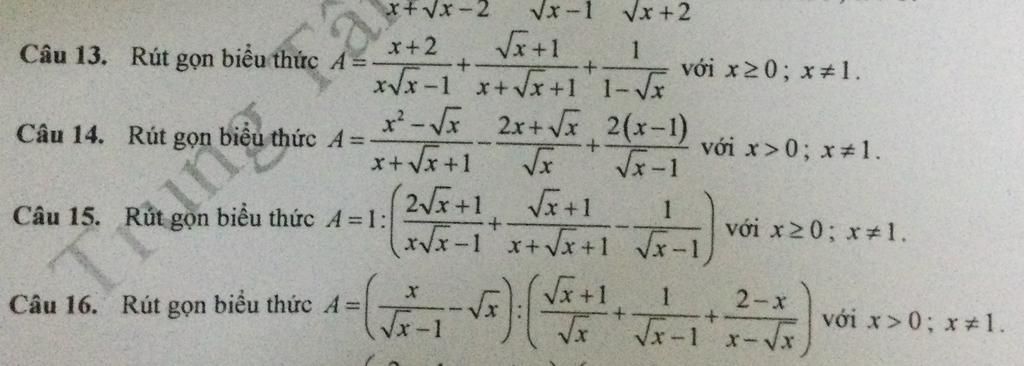 x+√x−2 √x−1 √x+2
Câu 13. Rút gọn biểu thức A = (x+2)/(x√x−1) + (√x+1)/(x+√x+1) + 1/(1−√x) với x ≥ 0; x ≠ 1.
Câu 14. Rút gọn biểu thức A = (x²−√x)/(x+√x+1) − (2x+√x)/√x + 2(x−1)/(√x−1) với x > 0; x ≠ 1.
Câu 15. Rút gọn biểu thức A = 1:((2√x+1)/(x√x−1) + (√x+1)/(x+√x+1) − 1/(√x−1)) với x ≥ 0; x ≠ 1.
Câu 16. Rút gọn biểu thức A = (x/(√x−1) − √x):((√x+1)/√x + 1/(√x−1) + (2−x)/(x−√x)) với x > 0; x ≠ 1.
Trung